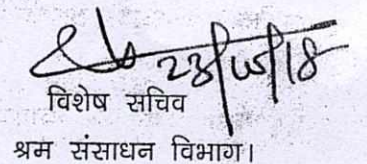 23/05/18
विशेष सचिव
श्रम संसाधन विभाग।